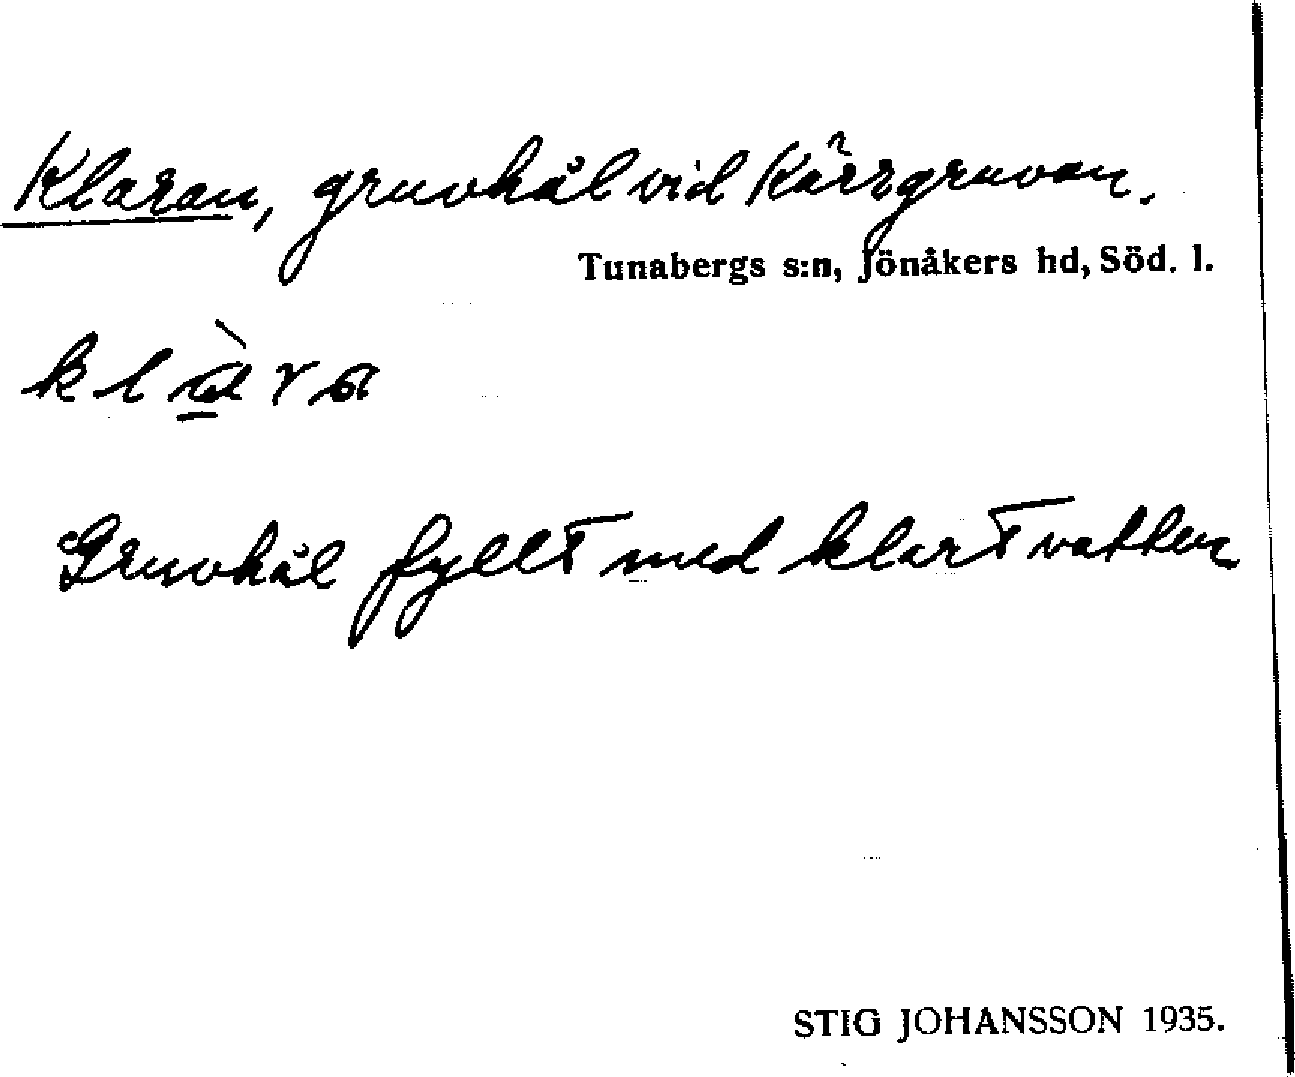 Klaran, gruvhål vid Kärrgruvan.
Tunabergs s:n, Jönåkers hd, Söd. l.
Gruvhål fyllt med klart vatten
STIG JOHANSSON 1935.